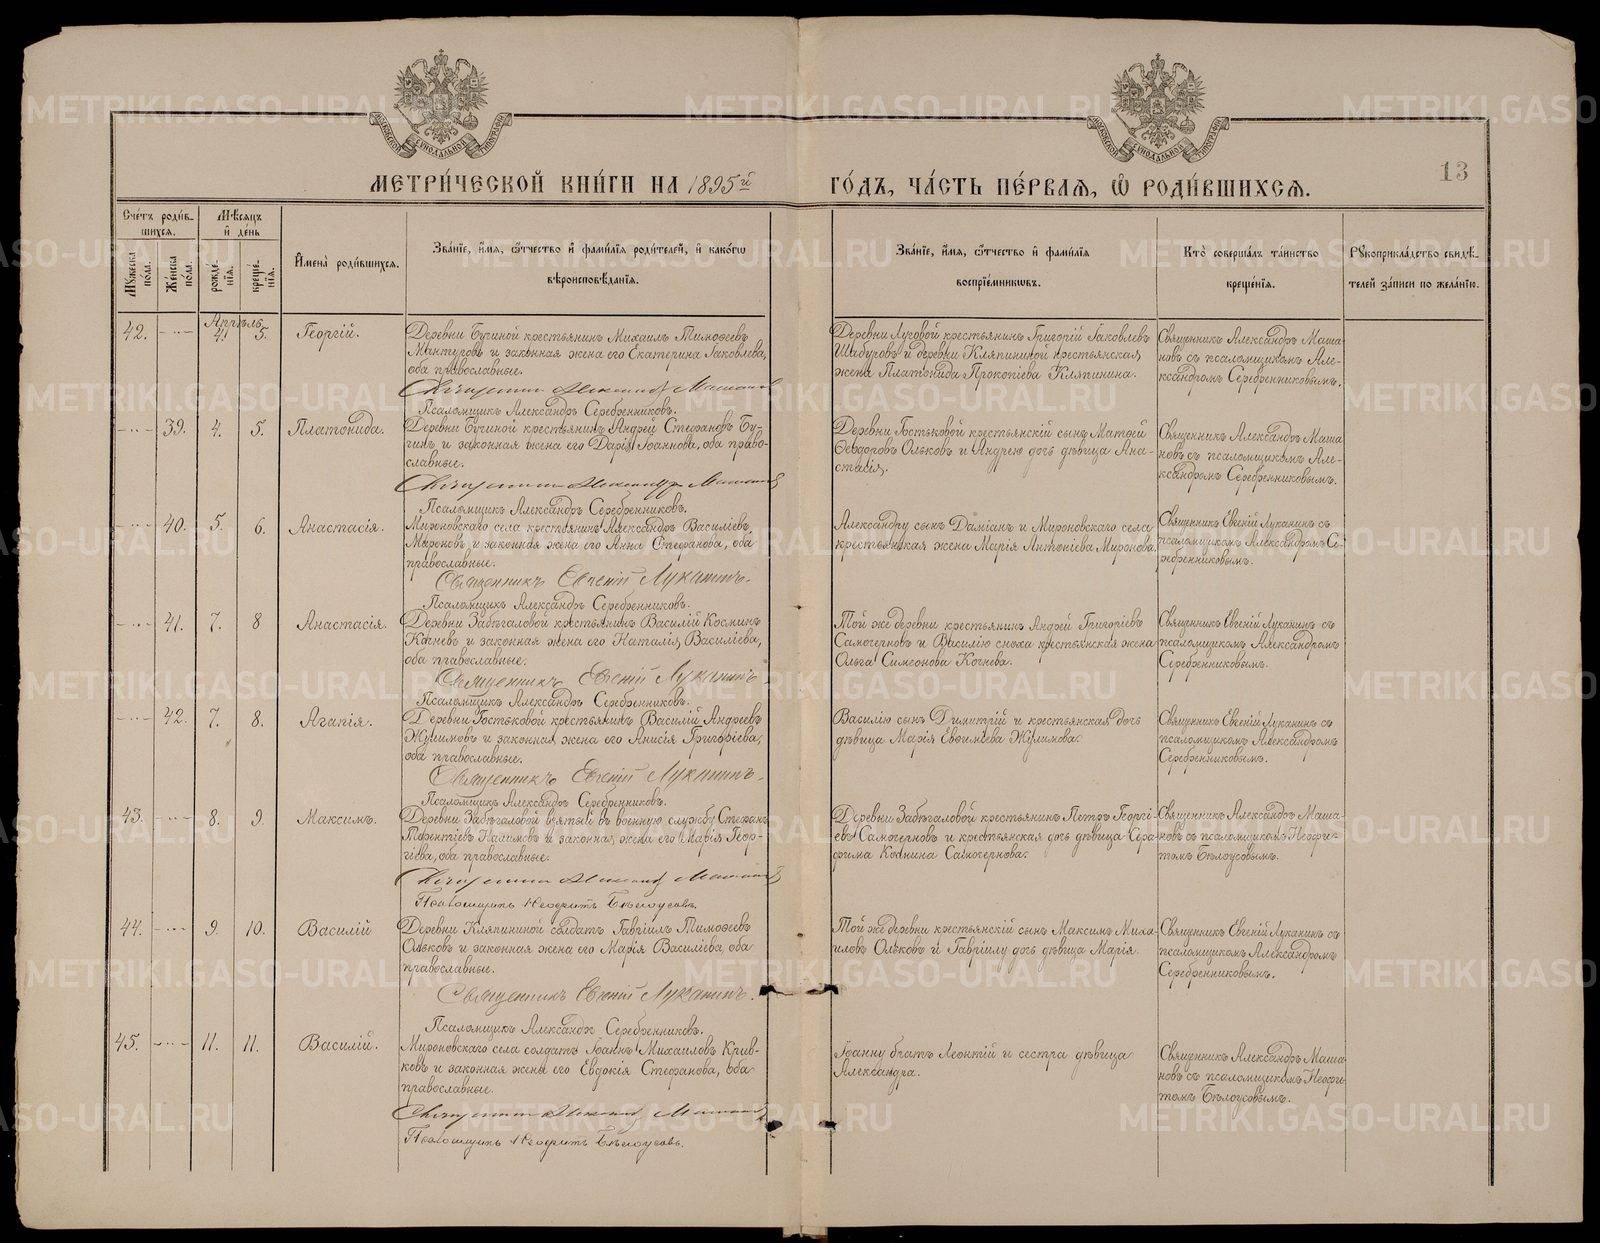 МОСКОВСКОЙ СѴНОДАЛЬНОЙ ТИПОГРАФІИ
МОСКОВСКОЙ СѴНОДАЛЬНОЙ ТИПОГРАФІИ
13
МЕТРИ́ЧЕСКОЙ КНИ́ГИ НА 1895й
ГО́ДЪ, ЧА́СТЬ ПЕ́РВАѦ, Ѡ РОДИ́ВШИХСѦ.
Сче́тъ роди́в-
шихсѧ.
Мѣ́сѧцъ
и҆ де́нь
Мꙋжеска по́ла.
Же́нска по́ла.
рожде́-
нїѧ.
креще́-
нїѧ.
И҆мена̀ роди́вшихсѧ.
Зва́нїе, и҆́мѧ, ѻ҆́тчество и҆ фами́лїѧ роди́телей, и҆ како́гѡ
вѣроисповѣ́данїѧ.
Зва́нїе, и҆́мѧ, ѻ҆́тчество и҆ фами́лїѧ
воспрїе́мникѡвъ.
Кто̀ соверша́лъ та́инство
креще́нїѧ.
Рꙋкоприкла́дство свидѣ́-
телей за́писи по жела́нїю.
Апрѣль
42.
4.
5.
Георгій.
Деревни Бучиной крестьянинъ Михаилъ Тимофеевъ
Мантуровъ и законная жена его Екатерина Іаковлева,
оба православные.
Священникъ Александръ Машановъ
Псаломщикъ Александръ Серебренниковъ.
Деревни Луговой крестьянинъ Григорій Іаковлевъ
Шабуровъ и деревни Кляпининой крестьянская
жена Платонида Прокопіева Кляпинина.
Священникъ Александръ Маша-
новъ съ псаломщикомъ Але-
ксандромъ Серебренниковымъ.
39.
4.
5.
Платонида.
Деревни Бучиной крестьянинъ Андрей Стефановъ Бу-
чинъ и законная жена его Дарія Іоаннова, оба право-
славные.
Священникъ Александръ Машановъ
Псаломщикъ Александръ Серебренниковъ.
Деревни Гостьковой крестьянскій сынъ Матфей
Феодоровъ Ольковъ и Андрею дочь дѣвица Ана-
стасія.
Священникъ Александръ Маша
новъ съ псаломщикомъ Але-
ксандромъ Серебренниковымъ.
40.
5.
6.
Анастасія.
Мироновскаго села крестьянинъ Александръ Василіевъ
Мироновъ и законная жена его Анна Стефанова, оба
православные.
Священникъ Евгеній Луканинъ.
Псаломщикъ Александръ Серебренниковъ.
Александру сынъ Даміанъ и Мироновскаго села
крестьянская жена Марія Антоніева Миронова.
Священникъ Евгеній Луканинъ съ
псаломщикомъ Александромъ Се-
ребренниковымъ.
41.
7.
8
Анастасія.
Деревни Забѣгаловой крестьянинъ Василій Косминъ
Кочневъ и законная жена его Наталія Василіева,
оба православные.
Священникъ Евгеній Луканинъ
Псаломщикъ Александръ Серебренниковъ.
Той же деревни крестьянинъ Андрей Григоріевъ
Самочерновъ и Василію сноха крестьянская жена
Ольга Симеонова Кочнева.
Священникъ Евгеній Луканинъ съ
псаломщикомъ Александромъ
Серебренниковымъ.
42.
7.
8.
Агапія.
Деревни Гостьковой крестьянинъ Василій Андреевъ
Жулимовъ и законная жена его Анисія Григоріева,
оба православные.
Священникъ Евгеній Луканинъ.
Псаломщикъ Александръ Серебренниковъ.
Василію сынъ Димитрій и крестьянская дочь
дѣвица Марія Евфиміева Жулимова.
Священникъ Евгеній Луканинъ съ
псаломщикомъ Александромъ
Серебренниковымъ.
43.
8.
9.
Максимъ.
Деревни Забѣгаловой взятый въ военную службу Стефанъ
Терентіевъ Налимовъ и законная жена его Марія Геор-
гіева, оба православные.
Священникъ Александръ Машановъ
Псаломщикъ Неофитъ Бѣлоусовъ.
Деревни Забѣгаловой крестьянинъ Петръ Георгі-
евъ Самочерновъ и крестьянская дочь дѣвица Сера-
фима Космина Самочернова.
Священникъ Александръ Маша-
новъ съ псаломщикомъ Неофи-
томъ Бѣлоусовымъ.
44.
9.
10.
Василій
Деревни Кляпининой солдатъ Гавріилъ Тимофеевъ
Ольковъ и законная жена его Марія Василіева, оба
православные.
Священникъ Евгеній Луканинъ.
Псаломщикъ Александръ Серебренниковъ.
Той же деревни крестьянскій сынъ Максимъ Миха-
иловъ Ольковъ и Гавріилу дочь дѣвица Марія.
Священникъ Евгеній Луканинъ съ
псаломщикомъ Александромъ
Серебренниковымъ.
45.
11.
11.
Василій.
Мироновскаго села солдатъ Іоаннъ Михаиловъ Крив-
ковъ и законная жена его Евдокія Стефанова, оба
православные.
Священникъ Александръ Машановъ
Псаломщикъ Неофитъ Бѣлоусовъ.
Іоанну братъ Леонтій и сестра дѣвица
Александра.
Священникъ Александръ Маша
новъ съ псаломщикомъ Неофи
томъ Бѣлоусовымъ.
METRIKI.GASO-URAL.RU